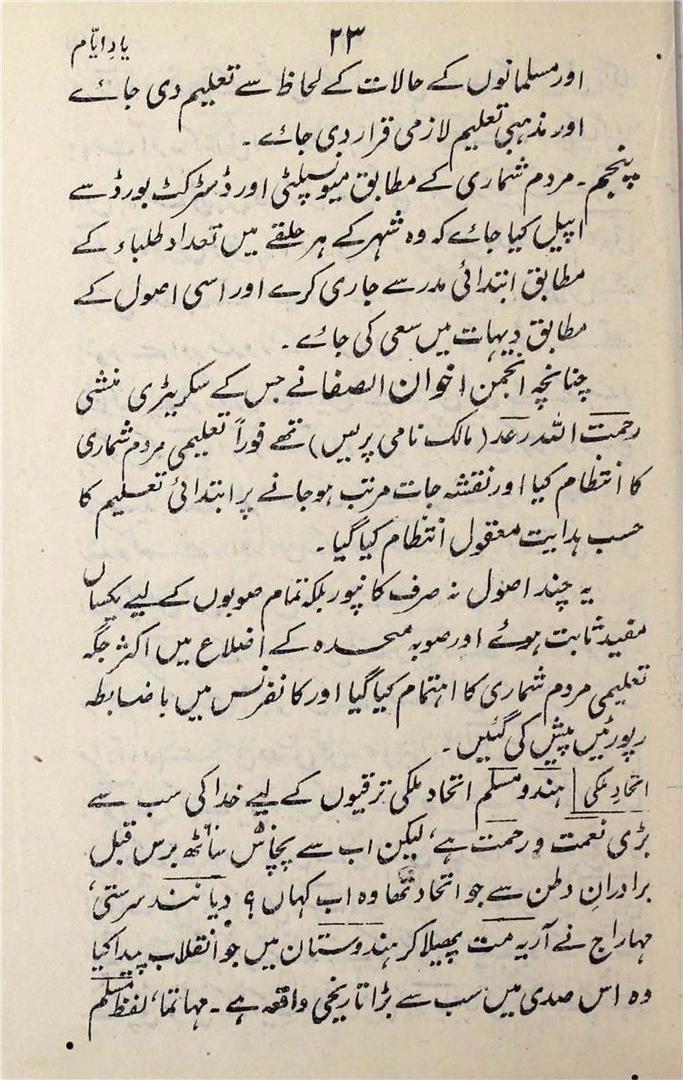 ۲۳
یادِ ایّام
اور مسلمانوں کے حالات کے لحاظ سے تعلیم دی جائے
اور مذہبی تعلیم لازمی قرار دی جائے ۔
پنجم ۔ مردم شماری کے مطابق میونسپلٹی اور ڈسٹرکٹ بورڈ سے
اپیل کیا جائے کہ وہ شہر کے ہر حلقے میں تعداد طلباء کے
مطابق ابتدائی مدرسے جاری کرے اور اسی اصول کے
مطابق دیہات میں سعی کی جائے ۔
چنانچہ انجمن اخوان الصفا نے جس کے سکریٹری منشی
رحمت اللہ رعد (مالک نامی پریس) تھے فوراً تعلیمی مردم شماری
کا انتظام کیا اور نقشہ جات مرتب ہو جانے پر ابتدائی تعلیم کا
حسب ہدایت معقول انتظام کیا گیا ۔
یہ چند اصول نہ صرف کانپور بلکہ تمام صوبوں کے لیے یکساں
مفید ثابت ہوئے اور صوبہ متحدہ کے اضلاع میں اکثر جگہ
تعلیمی مردم شماری کا اہتمام کیا گیا اور کانفرنس میں باضابطہ
رپورٹیں پیش کی گئیں ۔
اتحادِ ملکی | ہندو مسلم اتحاد ملکی ترقیوں کے لیے خدا کی سب سے
بڑی نعمت و رحمت ہے، لیکن اب سے پچاس ساٹھ برس قبل
برادرانِ وطن سے جو اتحاد تھا وہ اب کہاں؟ دیانند سرستی،
مہاراج نے آریہ مت پھیلا کر ہندوستان میں جو انقلاب پیدا کیا
وہ اس صدی میں سب سے بڑا تاریخی واقعہ ہے ۔ مہاتما، لفظ مسلم